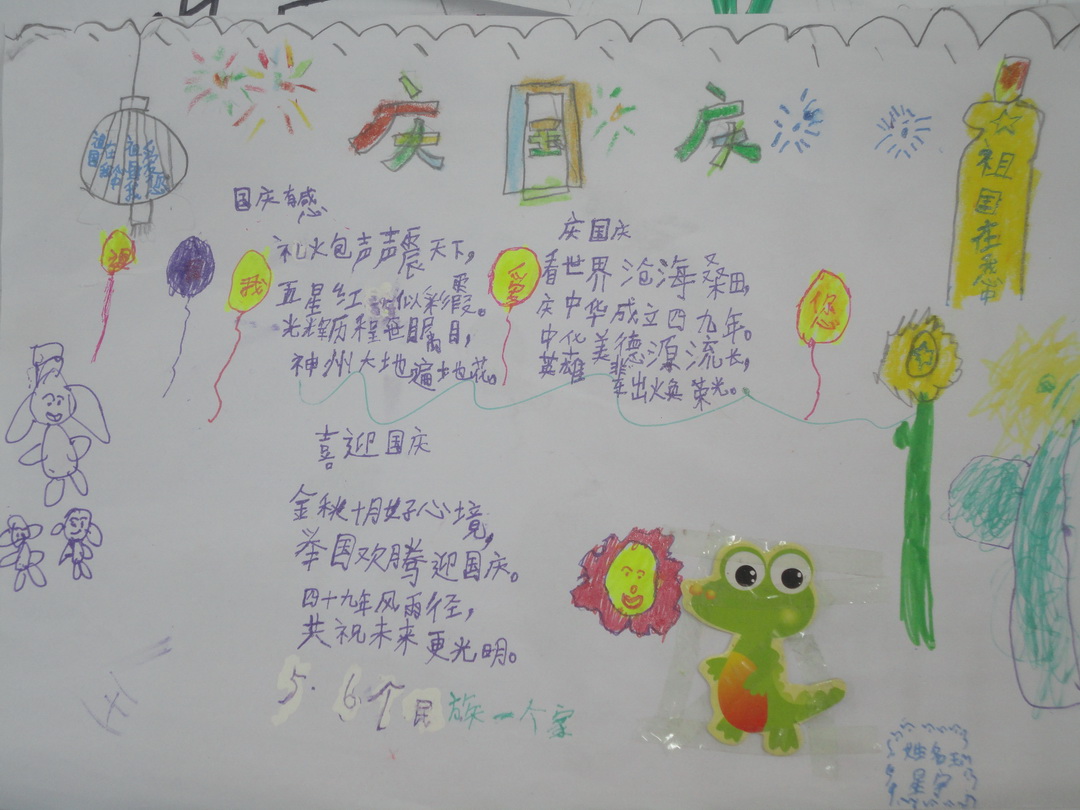 庆国庆
祖国在我心中
祖国在我心中
祖国
我爱您
祖
我
爱
您
国庆有感
礼火包声声震天下，
五星红 似彩霞。
光辉历程在瞩目，
神州大地遍地花。
庆国庆
看世界沧海桑田，
庆中华成立四九年。
中化美德源流长，
英雄辈出火奂荣光。
喜迎国庆
金秋十月好心境，
举国欢腾迎国庆。
四十九年风雨径，
共祝未来更光明。
5.6个民族一个家
姓名王
星宇